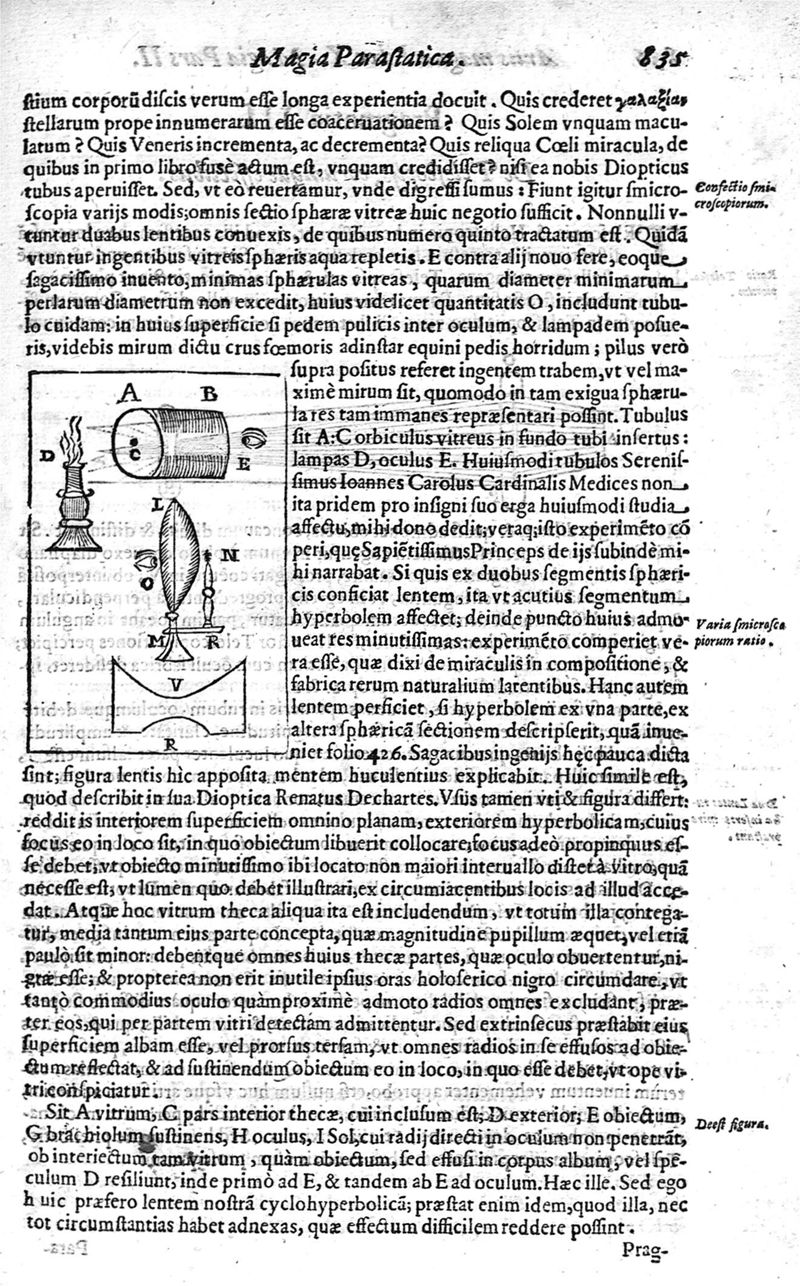 Magia Parastatica. 835
stium corporū discis verum esse longa experientia docuit. Quis crederet γαλαξίαν
stellarum prope innumerarum esse coaceruationem? Quis Solem vnquam macu-
latum? Quis Veneris incrementa, ac decrementa? Quis reliqua Cœli miracula, de
quibus in primo libro fusè actum est, vnquam credidisset? nisi ea nobis Diopticus
tubus aperuisset. Sed, vt eò reuertamur, vnde digressi sumus: Fiunt igitur smicro-
scopia varijs modis; omnis sectio sphæræ vitreæ huic negotio sufficit. Nonnulli v-
tuntur duabus lentibus conuexis, de quibus numero quinto tractatum est. Quidā
vtuntur ingentibus vitreis sphæris aqua repletis. E contra alij nouo fere, eoque
sagacissimo inuento, minimas sphærulas vitreas, quarum diameter minimarum
perlarum diametrum non excedit, huius videlicet quantitatis O, includunt tubu-
lo cuidam: in huius superficie si pedem pulicis inter oculum, & lampadem posue-
ris, videbis mirum dictu crus fœmoris adinstar equini pedis horridum; pilus verò
Confectio smi-
croscopiorum.
supra positus referet ingentem trabem, vt vel ma-
ximè mirum sit, quomodo in tam exigua sphæru-
la res tam immanes repræsentari possint. Tubulus
sit A: C orbiculus vitreus in fundo tubi insertus:
lampas D, oculus E. Huiusmodi tubulos Serenis-
simus Ioannes Carolus Cardinalis Medices non
ita pridem pro insigni suo erga huiusmodi studia
affectu, mihi dono dedit; veraq; isto experimēto cō
peri, quę Sapiētissimus Princeps de ijs subindè mi-
hi narrabat. Si quis ex duobus segmentis sphæri-
cis conficiat lentem, ita vt acutius segmentum
hyperbolem affectet; deinde puncto huius admo-
ueat res minutissimas: experimēto comperiet ve-
ra esse, quæ dixi de miraculis in compositione, &
fabrica rerum naturalium latentibus. Hanc autem
lentem perficiet, si hyperbolem ex vna parte, ex
altera sphæricā sectionem descripserit, quā inue-
niet folio 426. Sagacibus ingenijs hęc pauca dicta
Varia smicrosco
piorum ratio.
A B
D C E
L
O N
M R
V
R
sint; figura lentis hic apposita mentem huculentius explicabit. Huic simile est,
quod describit in sua Dioptica Renatus Dechartes. Vsus tamen vti & figura differt:
reddit is interiorem superficiem omnino planam, exteriorem hyperbolicam, cuius
focus eo in loco sit, in quo obiectum libuerit collocare; focus adeò propinquus es-
se debet, vt obiecto minutissimo ibi locato non maiori interuallo distet à vitro, quā
necesse est, vt lumen quo debet illustrari, ex circumiacentibus locis ad illud acce-
dat. Atque hoc vitrum theca aliqua ita est includendum, vt totum illa contega-
tur, media tantum eius parte concepta, quæ magnitudine pupillum æquet, vel etiā
paulò sit minor: debentque omnes huius thecæ partes, quæ oculo obuertentur, ni-
græ esse; & propterea non erit inutile ipsius oras holoserico nigro circumdare, vt
tantò commodius oculo quàm proximè admoto radios omnes excludant, præ-
ter eos, qui per partem vitri detectam admittentur. Sed extrinsecus præstabit eius
superficiem albam esse, vel prorsus tersam, vt omnes radios in se effusos ad obie-
ctum reflectat, & ad sustinendum obiectum eo in loco, in quo esse debet, vt ope vi-
tri conspiciatur.
Sit A vitrum, C pars interior thecæ, cui inclusum est; D exterior; E obiectum,
G brachiolum sustinens, H oculus, I Sol, cui radij directi in oculum non penetrāt,
ob interiectum tam vitrum, quàm obiectum, sed effusi in corpus album, vel spe-
culum D resiliunt, inde primò ad E, & tandem ab E ad oculum. Hæc ille. Sed ego
huic præfero lentem nostrā cyclohyperbolicā; præstat enim idem, quod illa, nec
tot circumstantias habet adnexas, quæ effectum difficilem reddere possint.
Deest figura.
Prag-